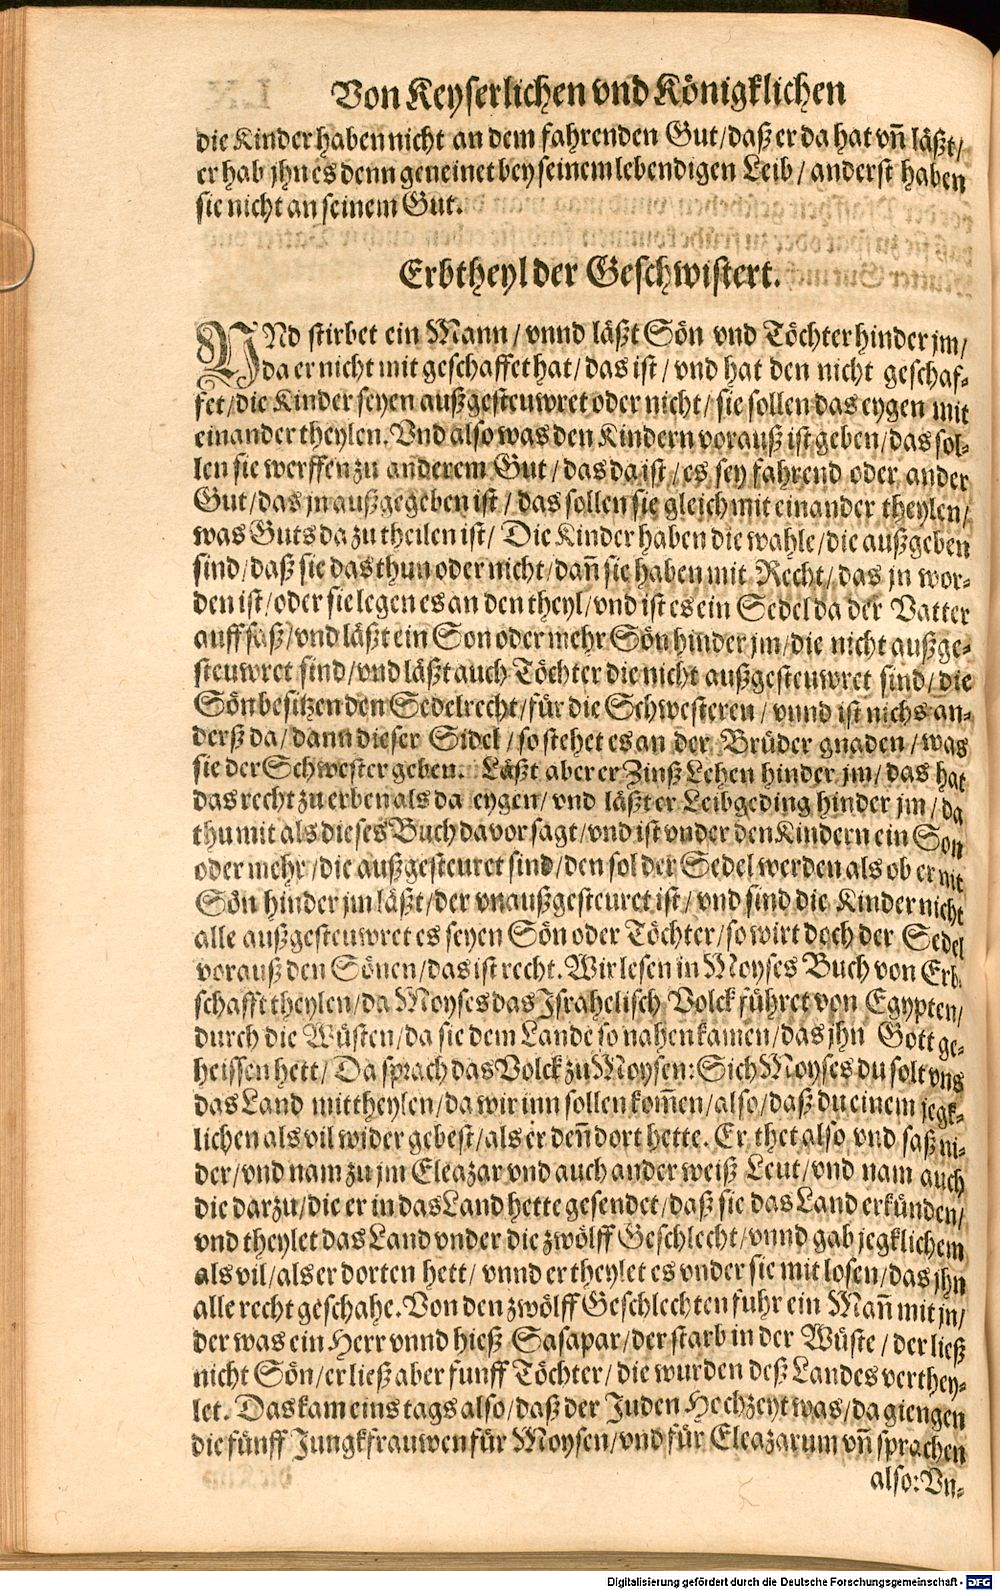 Von Keyserlichen vnd Königklichen
die Kinder haben nicht an dem fahrenden Gut/ daß er da hat vñ läßt/
er hab jhn es denn geneinet bey seinem lebendigen Leib/ anderst haben
sie nicht an seinem Gut.
Erbtheyl der Geschwistert.
VNd stirbet ein Mann/ vnnd läßt Sön vnd Töchter hinder jm/
da er nicht mit geschaffet hat/ das ist/ vnd hat den nicht geschaf-
fet/ die Kinder seyen außgesteuwret oder nicht/ sie sollen das eygen mit
einander theylen. Vnd also was den Kindern vorauß ist geben/ das sol-
len sie werffen zu anderem Gut/ das da ist/ es sey fahrend oder ander
Gut/ das jn außgegeben ist/ das sollen sie gleich mit einander theylen/
was Guts da zu theilen ist/ Die Kinder haben die wahle/ die außgeben
sind/ daß sie das thun oder nicht/ dañ sie haben mit Recht/ das jn wor-
den ist/ oder sie legen es an den theyl/ vnd ist es ein Sedel da der Vatter
auff saß/ vnd läßt ein Son oder mehr Sön hinder jm/ die nicht außge-
steuwret sind/ vnd läßt auch Töchter die nicht außgesteuwret sind/ die
Sön besitzen den Sedelrecht/ für die Schwesteren/ vnnd ist nichs an-
derß da/ dann dieser Sidel/ so stehet es an der Brüder gnaden/ was
sie der Schwester geben. Läßt aber er Zinß Lehen hinder jm/ das hat
das recht zu erben als da eygen/ vnd läßt er Leibgeding hinder jm/ da
thu mit als dieses Buch davor sagt/ vnd ist vnder den Kindern ein Son
oder mehr/ die außgesteuret sind/ den sol der Sedel werden als ob er mit
Sön hinder jm läßt/ der vnaußgesteuret ist/ vnd sind die Kinder nicht
alle außgesteuwret es seyen Sön oder Töchter/ so wirt doch der Sedel
vorauß den Sönen/ das ist recht. Wir lesen in Moyses Buch von Erb-
schafft theylen/ da Moyses das Israhelisch Volck führet von Egypten/
durch die Wüsten/ da sie dem Lande so nahen kamen/ das jhn Gott ge-
heissen hett/ Da sprach das Volck zu Moysen: Sich Moyses du solt vns
das Land mittheylen/ da wir inn sollen kom̃en/ also/ daß du einem jegk-
lichen als vil wider gebest/ als er deñ dort hette. Er thet also vnd saß ni-
der/ vnd nam zu jm Eleazar vnd auch ander weiß Leut/ vnd nam auch
die darzu/ die er in das Land hette gesendet/ daß sie das Land erkünden/
vnd theylet das Land vnder die zwölff Geschlecht/ vnnd gab jegklichem
als vil/ als er dorten hett/ vnnd er theylet es vnder sie mit losen/ das jhn
alle recht geschahe. Von den zwölff Geschlechten fuhr ein Mañ mit jn/
der was ein Herr vnnd hieß Sasapar/ der starb in der Wüste/ der ließ
nicht Sön/ er ließ aber funff Töchter/ die wurden deß Landes verthey-
let. Das kam eins tags also/ daß der Juden Hochzeyt was/ da giengen
die fünff Jungkfrauwen für Moysen/ vnd für Eleazarum vñ sprachen
also: Vn-
Digitalisierung gefördert durch die Deutsche Forschungsgemeinschaft - DFG